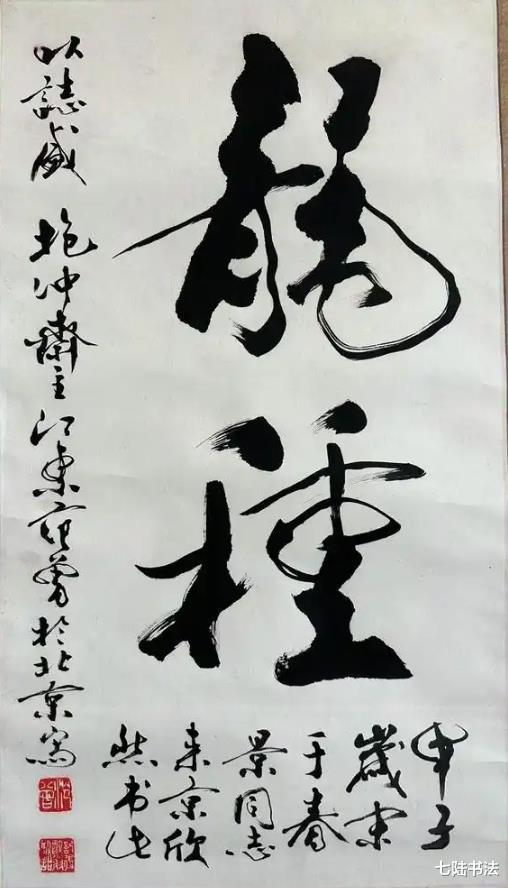 龍種
甲子
歲末
于春
景同志
来京欣
然书此
以誌感 抱冲齋主江東范曾於北京寓
范曾
七陆书法